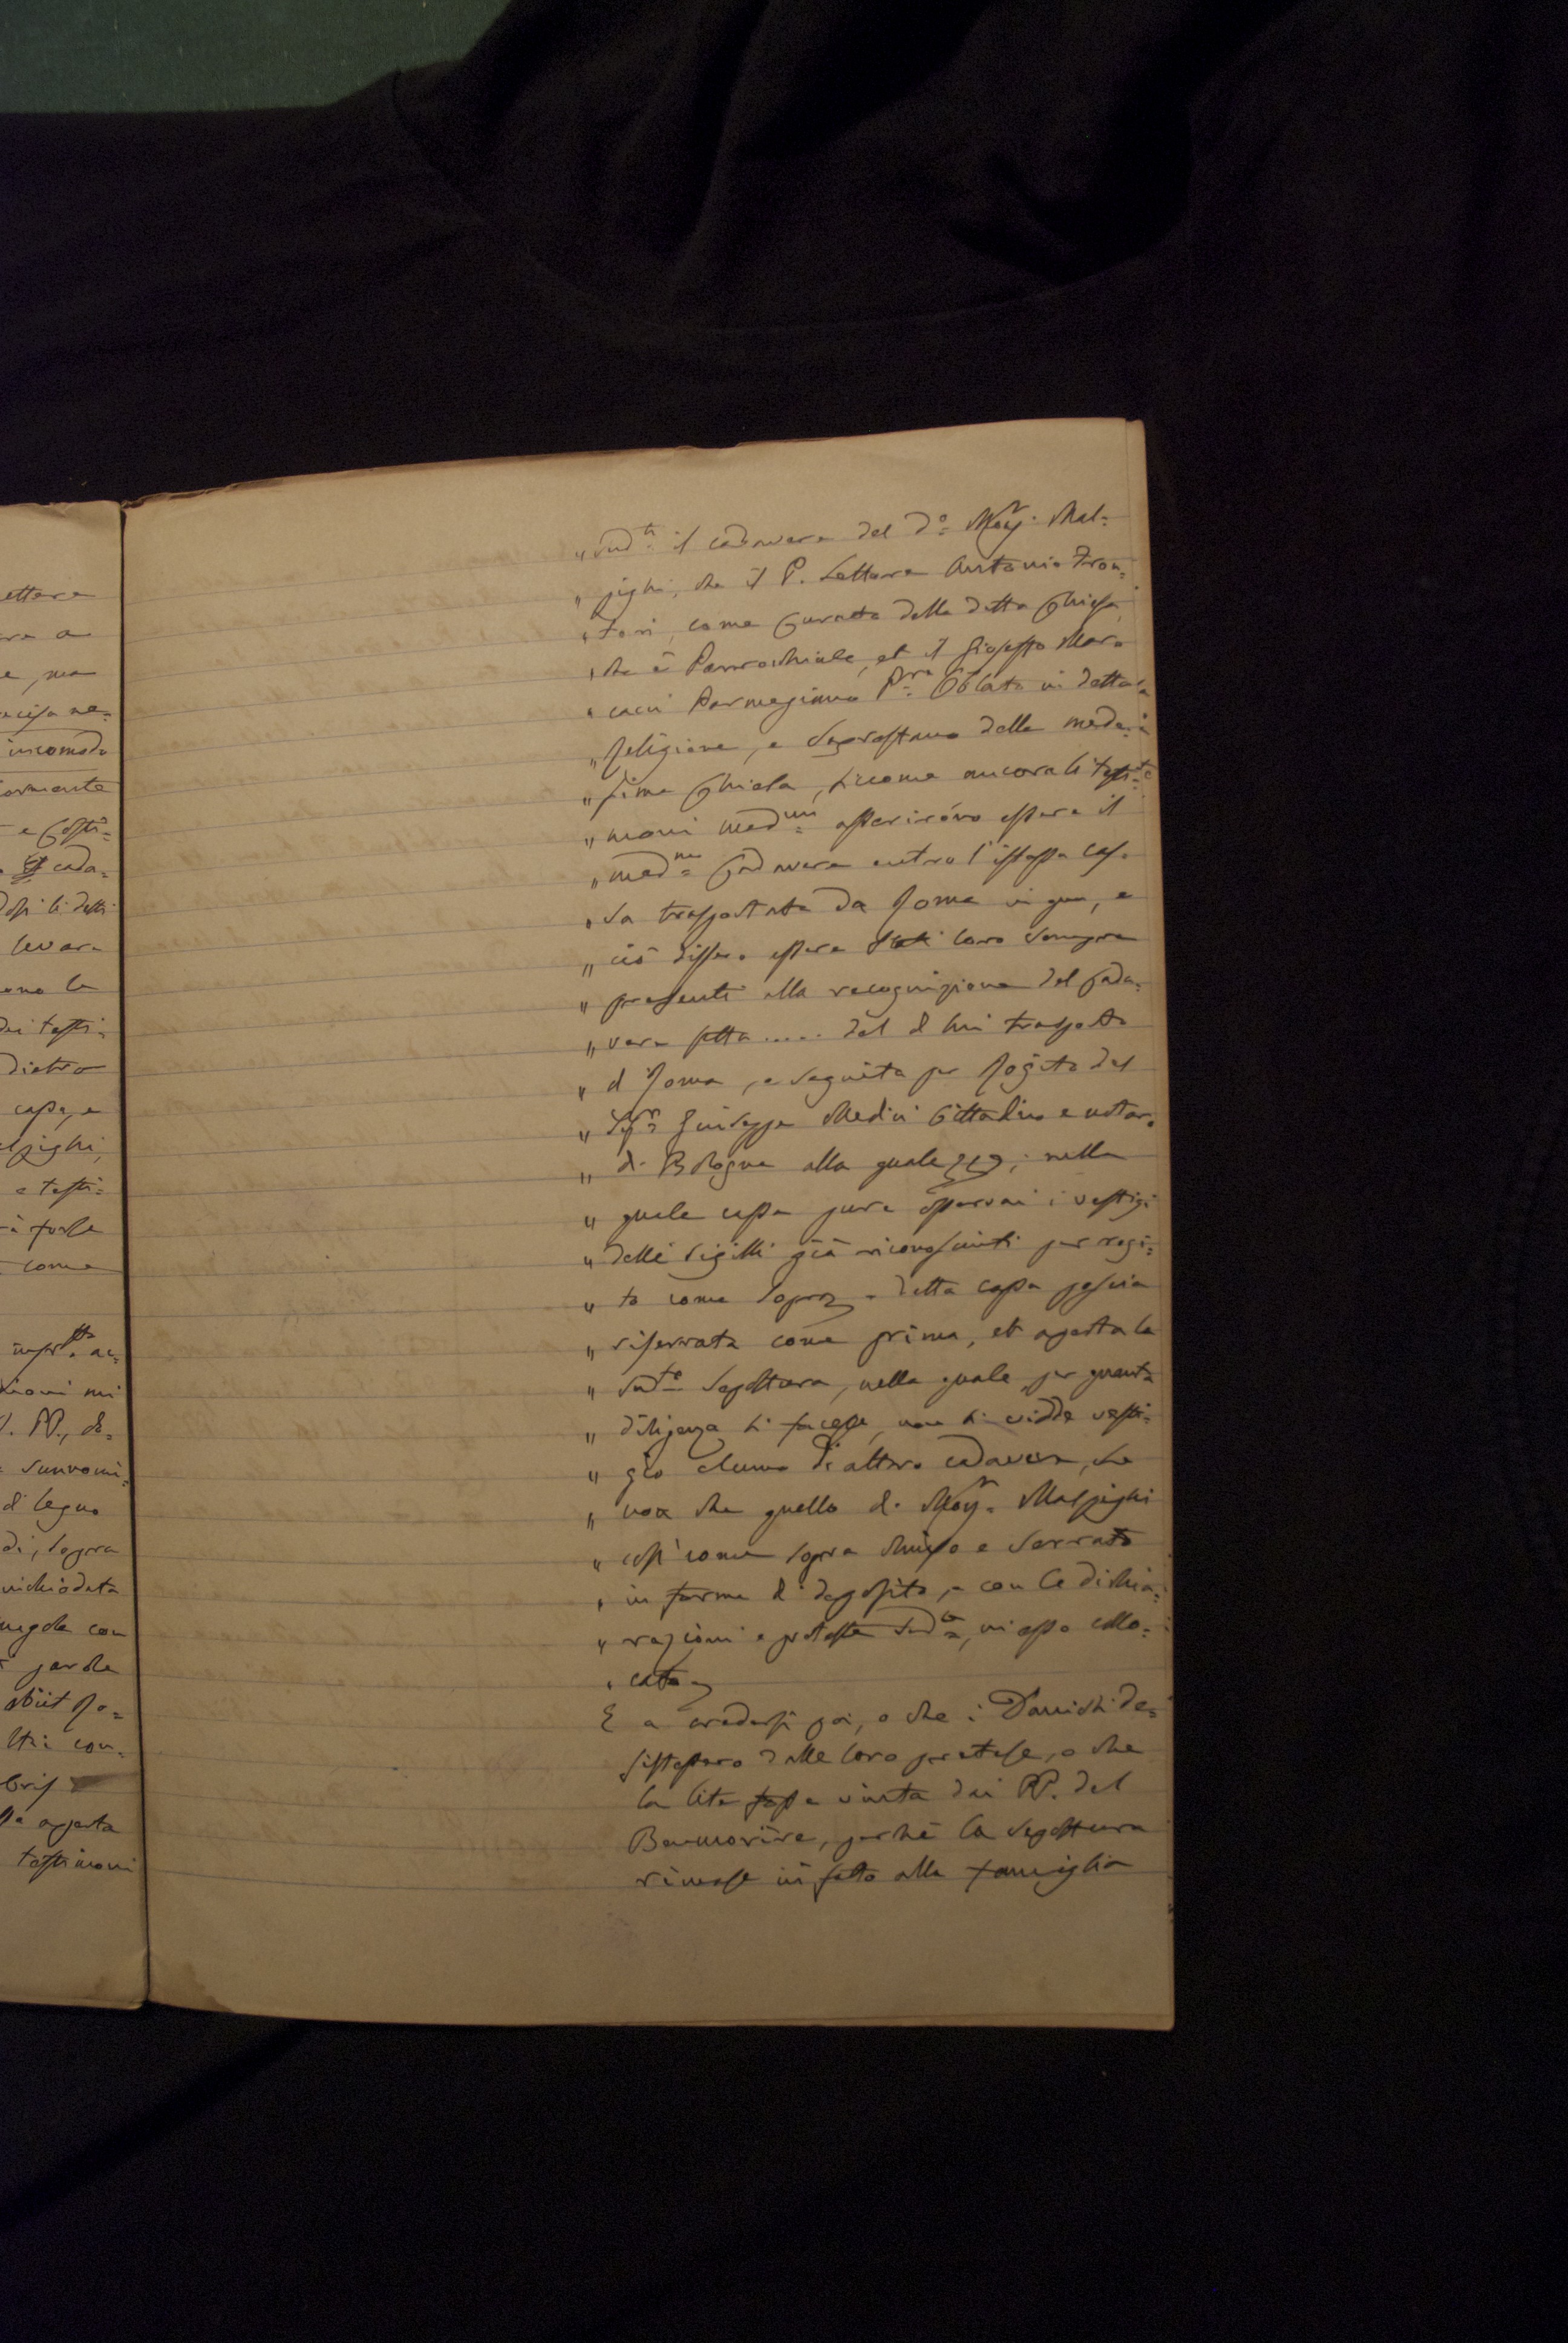 ettere
re a
e, ma
ncisa ne=
incomodo
ormente
e Costi=
cada=
dosi li detti
levar
ono le
dei testi=
dietro
cassa, e
lpighi,
e testi=
à forse
come
ioni mi
. PP., di=
sunnomi=
di legno
di, sopra
inchiodata
regola con
parole
obiit Ro=
ltri con=
aperta
testimoni
„ sud.ti il cadavere del d.o Mons.r Mal=
„ pighi, che il P. Lettore Antonio Fron=
„ tori, come Curato della detta Chiesa,
„ che è Parrochiale, et il Gioseffo Mara
„ cacci Parmegiano P.re Oblato in detta
„ Religione, e Soprastano della mede=
„ sima Chiesa, siccome ancora li testi=
„ moni med.mi asserirono essere il
„ med.mo Cadavere entro l'istessa cas=
„ sa trasportata da Roma in qua, e
„ ciò dissero essere stati loro sempre
„ presenti alla recognizione del Cada=
„ vere fatta ..... del di lui trasporto
„ di Roma, e seguita per Rogito del
„ Sig.r Giuseppe Medici Cittadino e notar.
„ di Bologna alla quale ; nella
„ quale cassa pure osservai i vestigi
„ delli sigilli già riconosciuti per rogi=
„ to come sopra. detta cassa poscia
„ riserrata come prima, et aperta la
„ sud.ta Sepoltura, nella quale per quanta
„ diligenza si facesse, non si vidde vesti=
„ gio alcuno di altro cadavere, se
„ non che quello di Mons.r Malpighi
„ così come sopra chiuso e serrato
„ in forma di deposito, e con le dichia=
„ razioni e proteste sud.te, in essa collo=
„ cato
E a credersi poi, o che i Danichi de=
sistessero dalle loro pretese, o che
la lite fosse vinta dai PP. del
Benmorire, perchè la sepoltura
rimase in fatto alla famiglia